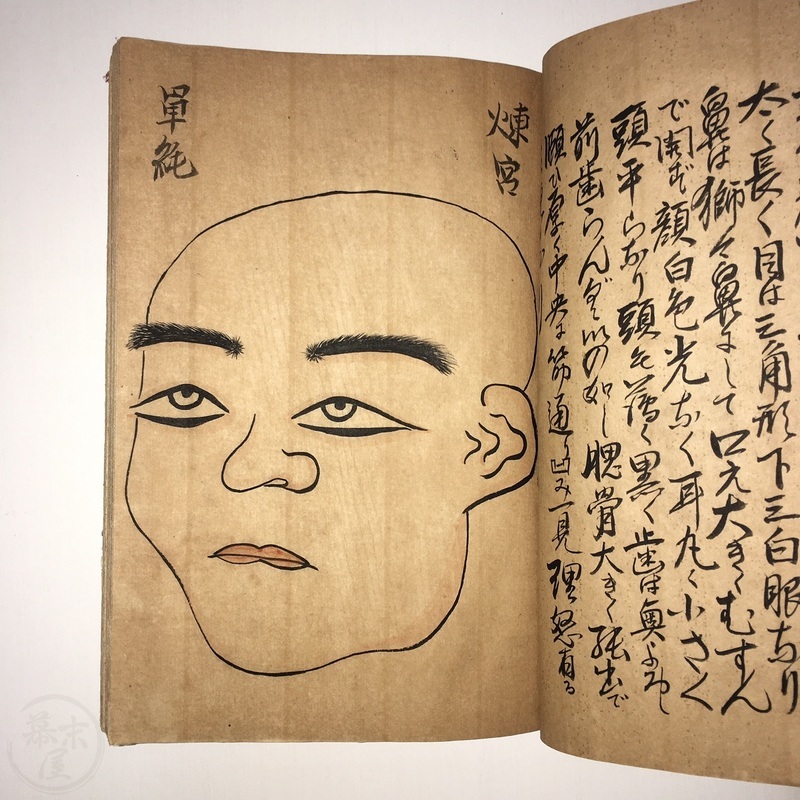 太く長く目は三角形下三白眼なり
鼻は獅々鼻にして口元大きくむすん
で開ず顔白色光なく耳丸く小さく
頭平らなり頭毛薄く黒く歯は奥よろし
前歯らんぐ以の如し腮骨大きく張出で
厚く中央に筋通り凹み一見理怒有る
煉宮
単純
幕末屋